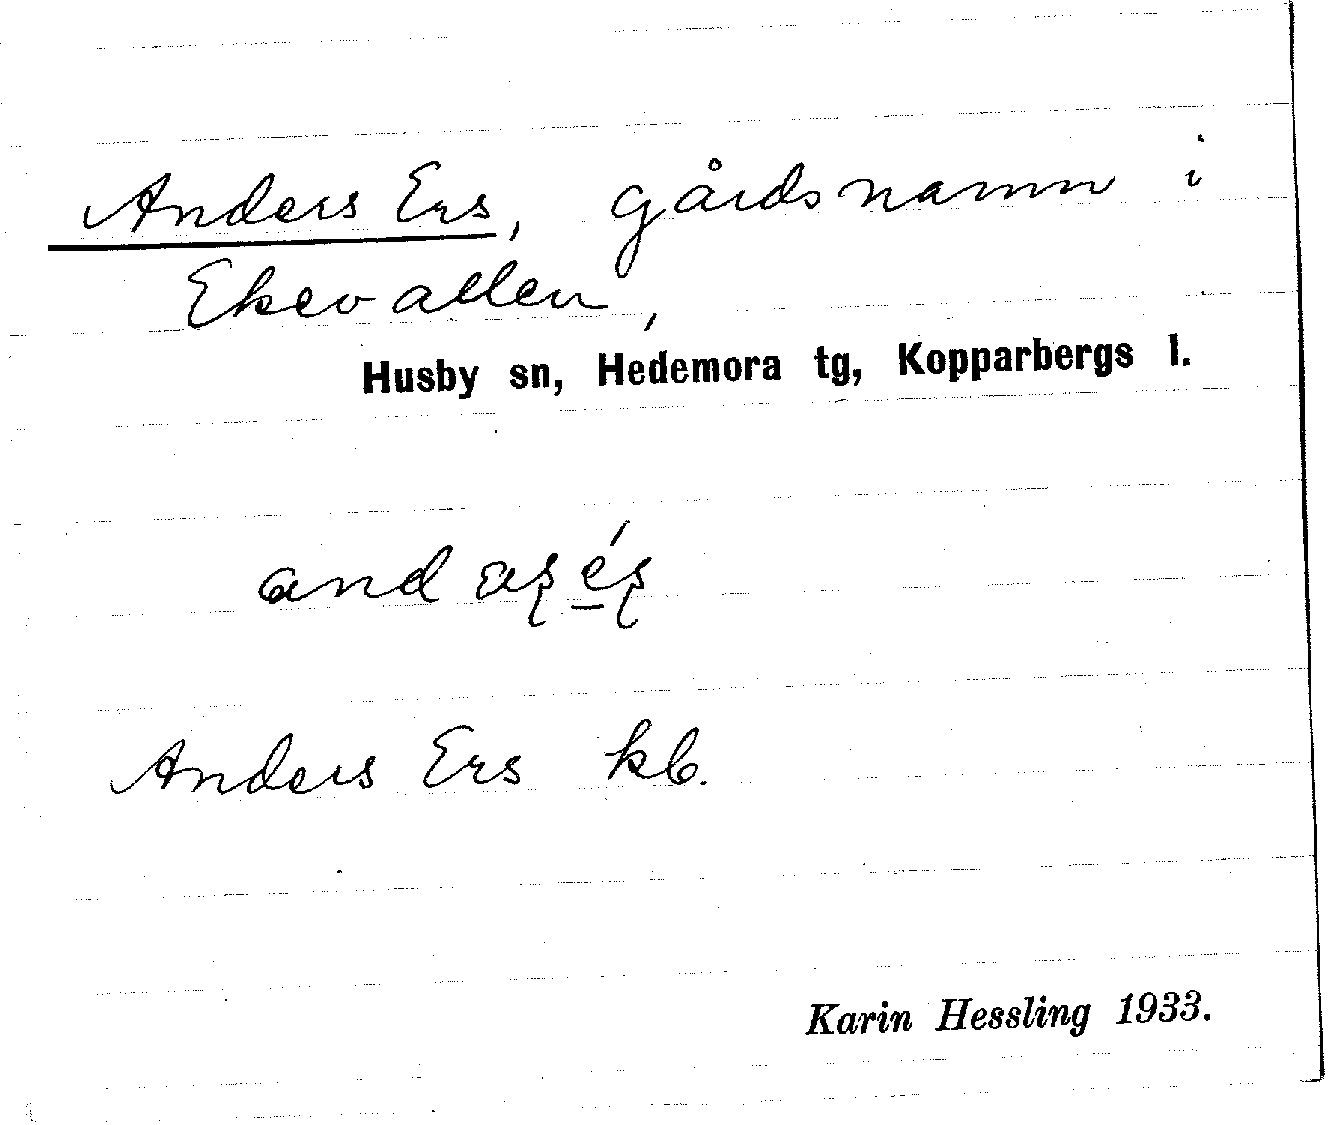 Anders Ers, gårdsnamn i
Ekevallen,
Husby sn, Hedemora tg, Kopparbergs l.
Anders Ers kb.
Karin Hessling 1933.